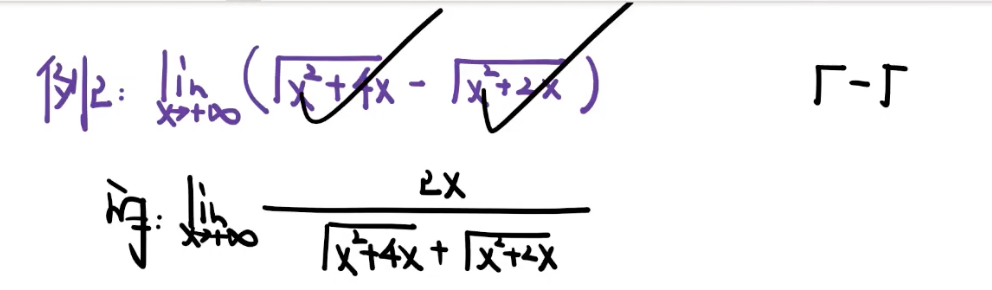 例2: lim x→+∞ (√(x²+4x) - √(x²+2x)) √-√
解: lim x→+∞ 2x / (√(x²+4x) + √(x²+2x))